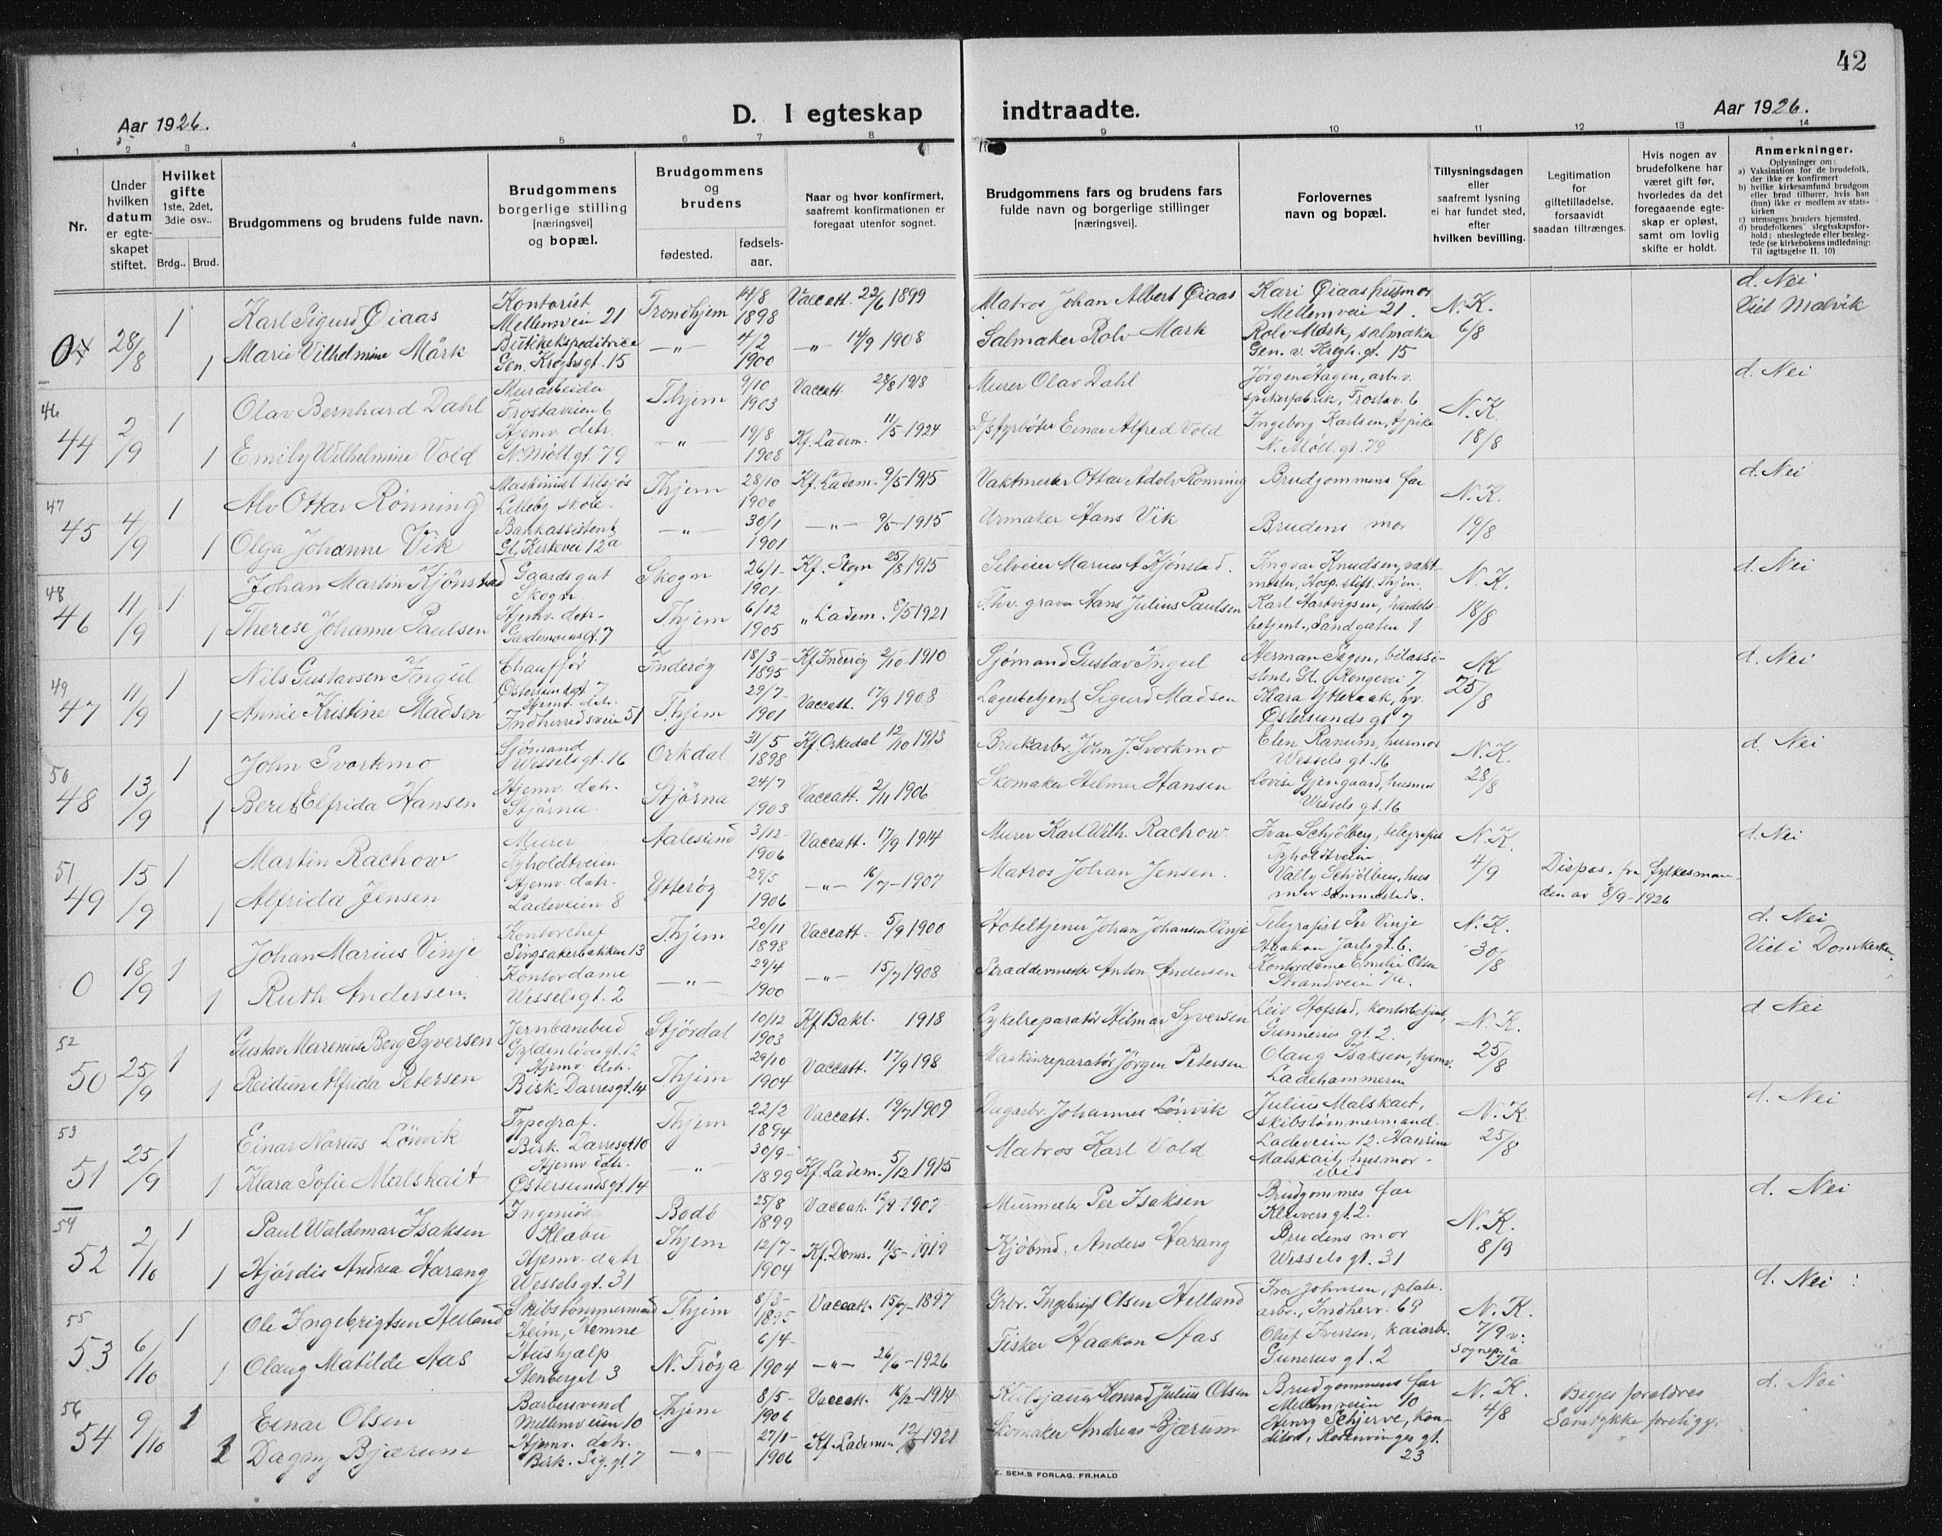 42
Aar 1926.
D. I egteskap indtraadte.
Aar 1926.
1 2 3 4 5 6 7 8 9 10 11 12 13 14
Nr.
Under hvilken datum er egteskapet stiftet.
Hvilket gifte 1ste, 2det, 3die osv..
Brdg.. Brud.
Brudgommens og brudens fulde navn.
Brudgommens borgerlige stilling [næringsvei] og bopæl.
Brudgommens og brudens
fødested.
fødsels-aar.
Naar og hvor konfirmert, saafremt konfirmationen er foregaat utenfor sognet.
Brudgommens fars og brudens fars fulde navn og borgerlige stillinger [næringsvei].
Forlovernes navn og bopæl.
Tillysningsdagen eller saafremt lysning ei har fundet sted, efter hvilken bevilling.
Legitimation for giftetilladelse, forsaavidt saadan tiltrænges.
Hvis nogen av brudefolkene har været gift før, hvorledes da det foregaaende egteskap er opløst, samt om lovlig skifte er holdt.
Anmerkninger.
Oplysninger om:
a) Vaksination for de brudefolk, der ikke er konfirmert
b) hvilke kirkesamfund brudgom eller brud tilhører, hvis han (hun) ikke er medlem av statskirken
c) utensogns bruders hjemsted.
d) brudefolkenes slegtsskapsforhold; ubeslegtede eller beslegtede (se kirkebokens indledning: Til iagttagelse II. 10)
0 28/8 1 Karl Sigurd Øiaas Kontorist Mellemvei 21 Trondhjem 14/8 1898 Vaccatt. 22/6 1899 Matros Johan Albert Øiaas Kari Øiaas husmor Mellemvei 21. N. K. 6/8 d. Nei Viet Malvik
1 Marie Vilhelmine Mörk Butikkekspeditrice Gen. Kroghsgt. 15 —„— 4/2 1900 „ 14/9 1908 Salmaker Rolv Mørk Rolv Mørk, salmaker Gen. v. Krogh. gt. 15
46 44 2/9 1 Olav Bernhard Dahl Murarbeider Frostaveien 6 Thjem 9/10 1903 Vaccatt. 28/8 1918 Murer Olav Dahl Jørgen Hagen, arb. v. spikerfabrik, Frostav. 6 N. K. 18/8 d. Nei
1 Emily Wilhelmine Vold Hjemv. datr. N. Møll. gt 79 —„— 19/8 1908 Kf. Ladem. 11/5-1924 D/s fyrbøter Einar Alfred Vold Ingeborg Karlsen, N. Møll. gt. 79
47 45 4/9 1 Alv Ottar Rønning Maskinist tilsjøs Lilleby skole. Thjem 28/10 1900 Kf. Ladem. 9/5-1915 Vaktmester Ottar Adolv Rønning Brudgommens far N. K. 19/8 d. Nei
1 Olga Johanne Vik Bankassistent Gl. Kirkevei 12a —„— 30/1 1901 —„— 9/5-1915 Urmaker Hans Vik Brudens mor
48 46 11/9 1 Johan Martin Kjönstad Gaardsgut Skogn Skogn 26/1- 1901. Kf. Skogn 25/8 1915 Selveier Marius A Kjønstad. Ingvar Knudsen, vaktmester, Hosp. stift. Thjem. N. K. 18/8 d. Nei
1 Therese Johanne Paulsen Hjemv. datr. Lademoensgt. 7 Thjem 6/12 1905 „ Ladem. 8/5 1921 Hans Julius Paulsen Karl Hartvigsen, handelsbetjent, Sandgaten 9
49 47 11/9 1 Nils Gustavsen Ingul Chauffør Østersundsgt 7 Inderøy 18/3- 1895 Kf Inderøy 2/10 1910 Sjømand Gustav Ingul Herman Sagen, bilassistent, Gl. Kongevei 7 NK 25/8 d. Nei
1 Annie Kristine Madsen Hjemv. datr. Indherredsveien 51 Thjem 29/7- 1901 Vaccatt. 17/9 1908 Lagerbetjent Sigurd Madsen Klara Ytteraak, hv. Østersunds gt 7
50 48 13/9 1 John Svorkmo Sjømand Wessels gt. 16 Orkdal 31/5 1898 Kf. Orkedal 12/10 1913 Brukarbr. John J. Svorkmo Elen Ranum, husmor Wessels gt. 16 N. K. 28/8 d. Nei
1 Beret Elfrida Hansen Hjemv. datr. Stjørna Stjørna 24/7 1903 Vaccatt. 2/11 1906 Skomaker Helmer Hansen Lovise Gjengaard, husmor Wessels gt. 16
51 49 15/9 1 Martin Rachow Murer Tyholdtveien Aalesund 3/12- 1906 Vaccatt. 17/9 1914 Murer Karl Wilh. Rachow. Ivar Schjølberg, telegrafist Tyholdtveien N. K. 4/9 d. Nei
1 Alfrida Jensen Hjemv. datr. Ladeveien 8 Ytterøy 29/5 1906 —„— 16/7-1907 Matros Johan Jensen. Vally Schjølberg, husmor sammesteds. Dispos. fra fylkesmanden av 8/9-1926
0 18/9 1 Johan Marius Vinje Kontorchef Singsakerbakken 13 Thjem 20/11 1898 Vaccatt. 5/9 1900 Hoteltjener Johan Johansen Vinje Telegrafist Per Vinje Haakon Jarls gt. 6. N. K. 30/8 d. Nei Viet i Domkirken
1 Ruth Andersen. Kontordame Wessels gt. 2 —„— 29/4 1900 —„— 15/7 1908 Skræddermester Anton Andersen Kontordame Emilie Olsen Strandveien 7a.
52 50 25/9 1 Gustav Marenus Berg Syversen Jernbanebud Gyldenløvesgt. 12 Stjördal 10/12 1903 Kf Bakl. 1918 Cykelreparatör Hilmar Syversen Leiv Hofstad, kontorbetjent, Gunnerus gt. 2. N. K. 25/8 d Nei
1 Reidun Alfrida Petersen Hjemv. datr. Bisk. Darresgt. 14 Thjem 29/10 1904 Vaccatt. 17/9 198 Maskinreparatör Jörgen Petersen Olaug Isaksen, hjemv. Ladehammeren
53 51 25/9 1 Einar Norius Lönvik Typograf. Bisk. Darresgt 10 Thjem 22/2 1894 Vaccatt. 19/7 1909 Dagarbr. Johannes Lönvik Julius Malskait, skibstømmermand. Ladeveien 12. N. K. 25/8 d. Nei
1 Klara Sofie Malskait Hjemv. datr. Østersundsgt. 14 —„— 30/9- 1899 Kf. Ladem. 5/12 1915 Matros Karl Vold Hansine Malskait, husmor ibid
54 52 2/10 1 Paul Waldemar Isaksen Ingeniör Klæbu Bodö 25/8 1899 Vaccatt. 12/9-1907 Murmester Per Isaksen Brudgommes far Kleivers gt. 2. N. K. 8/9 d. Nei
1 Hjördis Andrea Harang Hjemv. datr Wessels gt. 31 Thjem 12/7- 1904 Kf. Doms. 11/5-1919 Kjøbmd. Anders Harang Brudens mor Wessels gt. 31
55 53 6/10 1 Ole Ingebrigtsen Helland Skibstømmermand Heim, Hemne Thjem 8/3- 1895 Vaccatt. 15/7-1897 Grbr. Ingebrigt Olsen Helland Iver Johnsen, platearb., Indherv. 69 N. K. 7/9 v. sognep. i Ila d. Nei
1 Olaug Matilde Aas Hushjælp Stenberget 3 N. Frøya 6/4- 1904 —„— 26/6-1926 Fisker Haakon Aas Oluf Iversen, kaiarb. Gunerus gt. 2
56 54 9/10 1 Einar Olsen Barbersvend Mellemveien 10 Thjem 8/5- 1906 Vaccatt. 16/12-1914 Konrad Julius Olsen Brudgommens far Mellemveien 10 N. K. 4/8 Begges forældres Samtykke foreligger d. Nei
1 Dagny Bjærum Hjemv. datr. Bisk. Sig. gt. 7 —„— 27/1- 1906 Kf. Lademoen 12/5 1921 Skomaker Andreas Bjærum Henry Schjerve, konditor, Rosenvinges gt. 23
E. SEM.S FORLAG. FR.HALD